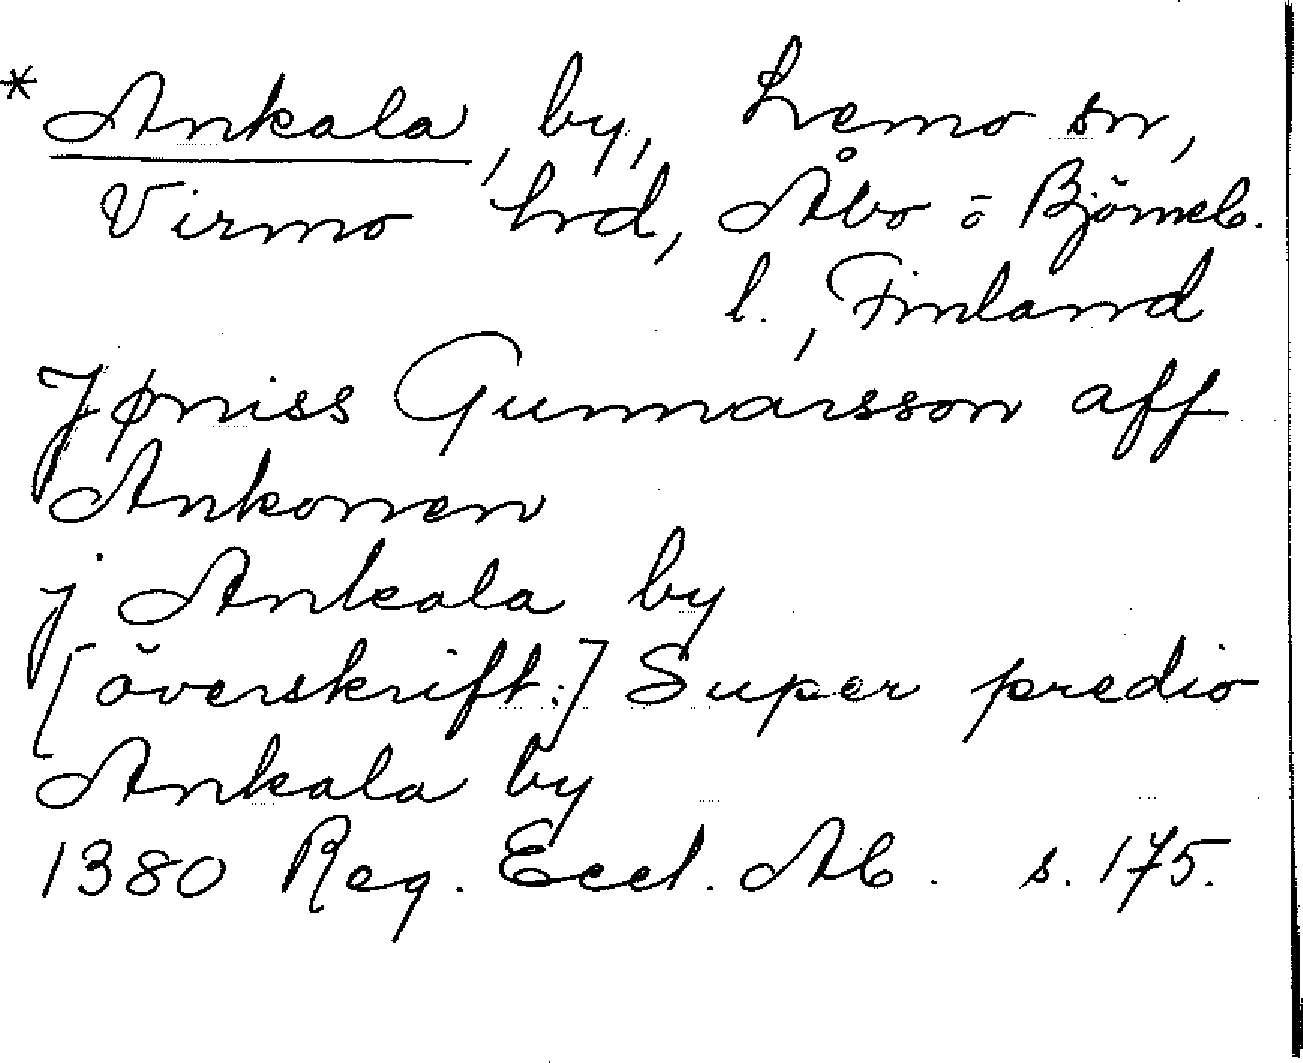 * Ankala, by, Lemo sn,
Virmo hrd, Åbo o Björneb.
l., Finland
Jøniss Gunnarsson aff
Ankonen
j Ankala by
[överskrift:] Super predio
Ankala by
1380 Reg. Eccl. Ab. s. 175.